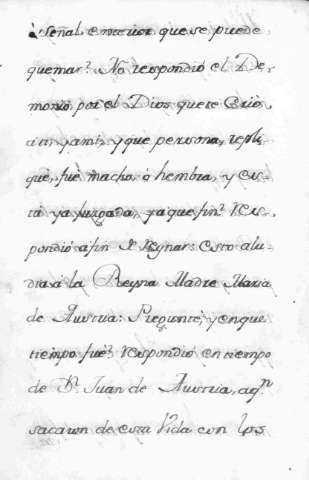 ò señal exterior que se puede
quemar? No respondió el De-
monio, por el Dios que te Crió,
a ti, y a mi, y que persona, repli-
què, fuè macho, ò hembra, y es-
tà ya juzgada, y a que fin? Res-
pondió a fin de Reynar: esto alu-
dia à la Reyna Madre Maria
de Austria: Preguntè, y en que
tiempo fuè? respondió en tiempo
de Dn. Juan de Austria, a qn.
sacaron de esta Vida con los